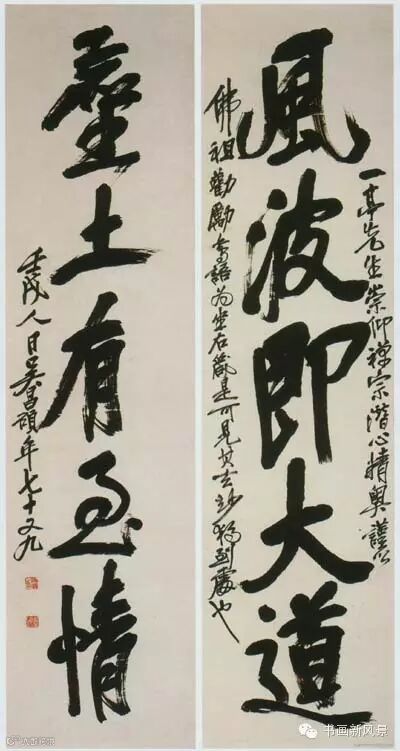 風波即大道
一亭先生崇仰禪宗潛心精奥謹以
佛祖勸勵語为坐右箴是可見其玄妙處也
塵土有至情
壬戌人日吴昌碩年七十又九
书画新风景